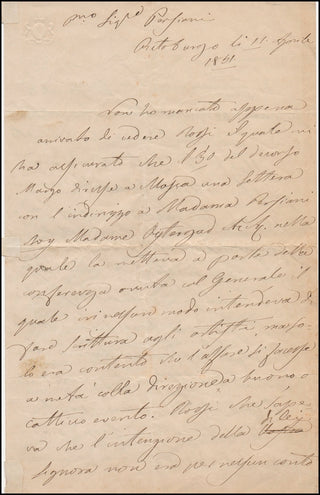 Sig.r Persiani
Pietroburgo li 11 Aprile
1841.
Non ho mancato appena
arrivato di vedere Rossi il quale mi
ha assicurato che il 30 del decorso
Marzo diresse a Mosca una lettera
con l'indirizzo a Madama Persiani
Madame nella
quale la metteva a parte della
conferenza avuta col Generale il
quale in nessun modo intendeva di
fare scrittura agli artisti, ma so=
lo era contento che l'affare si facesse
a metà colla direzione da buono o
cattivo evento. Rossi che sape=
va che l'intenzione della di Lei
Signora non era per nessun conto